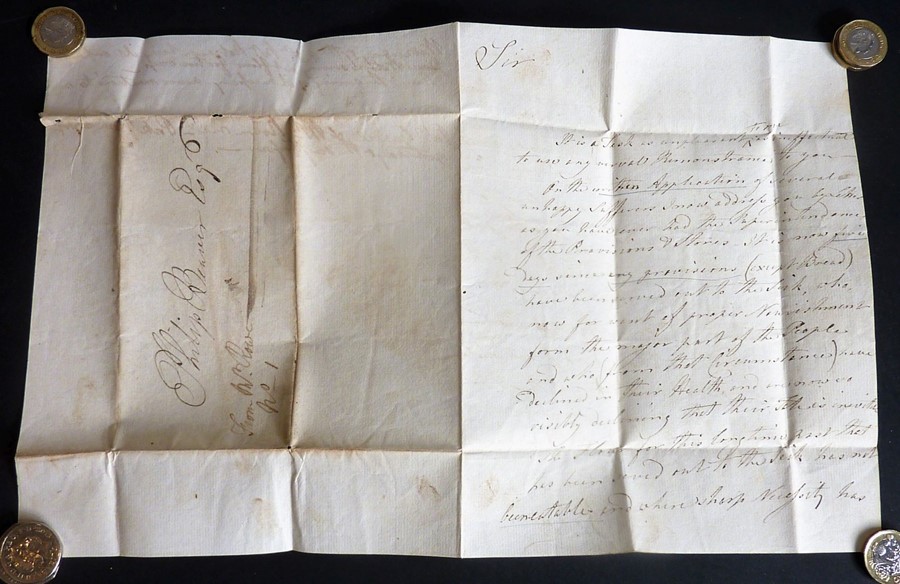 Philip Beaver Esqr
From Mr Rowe
No 1
Sir
It is a Task so unpleasant to me
to use any moral Remonstrance to you
On the written Application of several
unhappy Sufferers I now address you
as you have ever had the and
of the Provisions & Stores. It is now five
Days since any provisions (except Bread)
have been served out to the Sick, who
now for want of proper Nourishment
form the major part of the People
and who (from that Circumstance) have
declined in their Health and are now so
visibly declining that their Fate is inevita
The Flour for this long time past that
has been served out to the Sick has not
been eatable and where sharp Necessity has